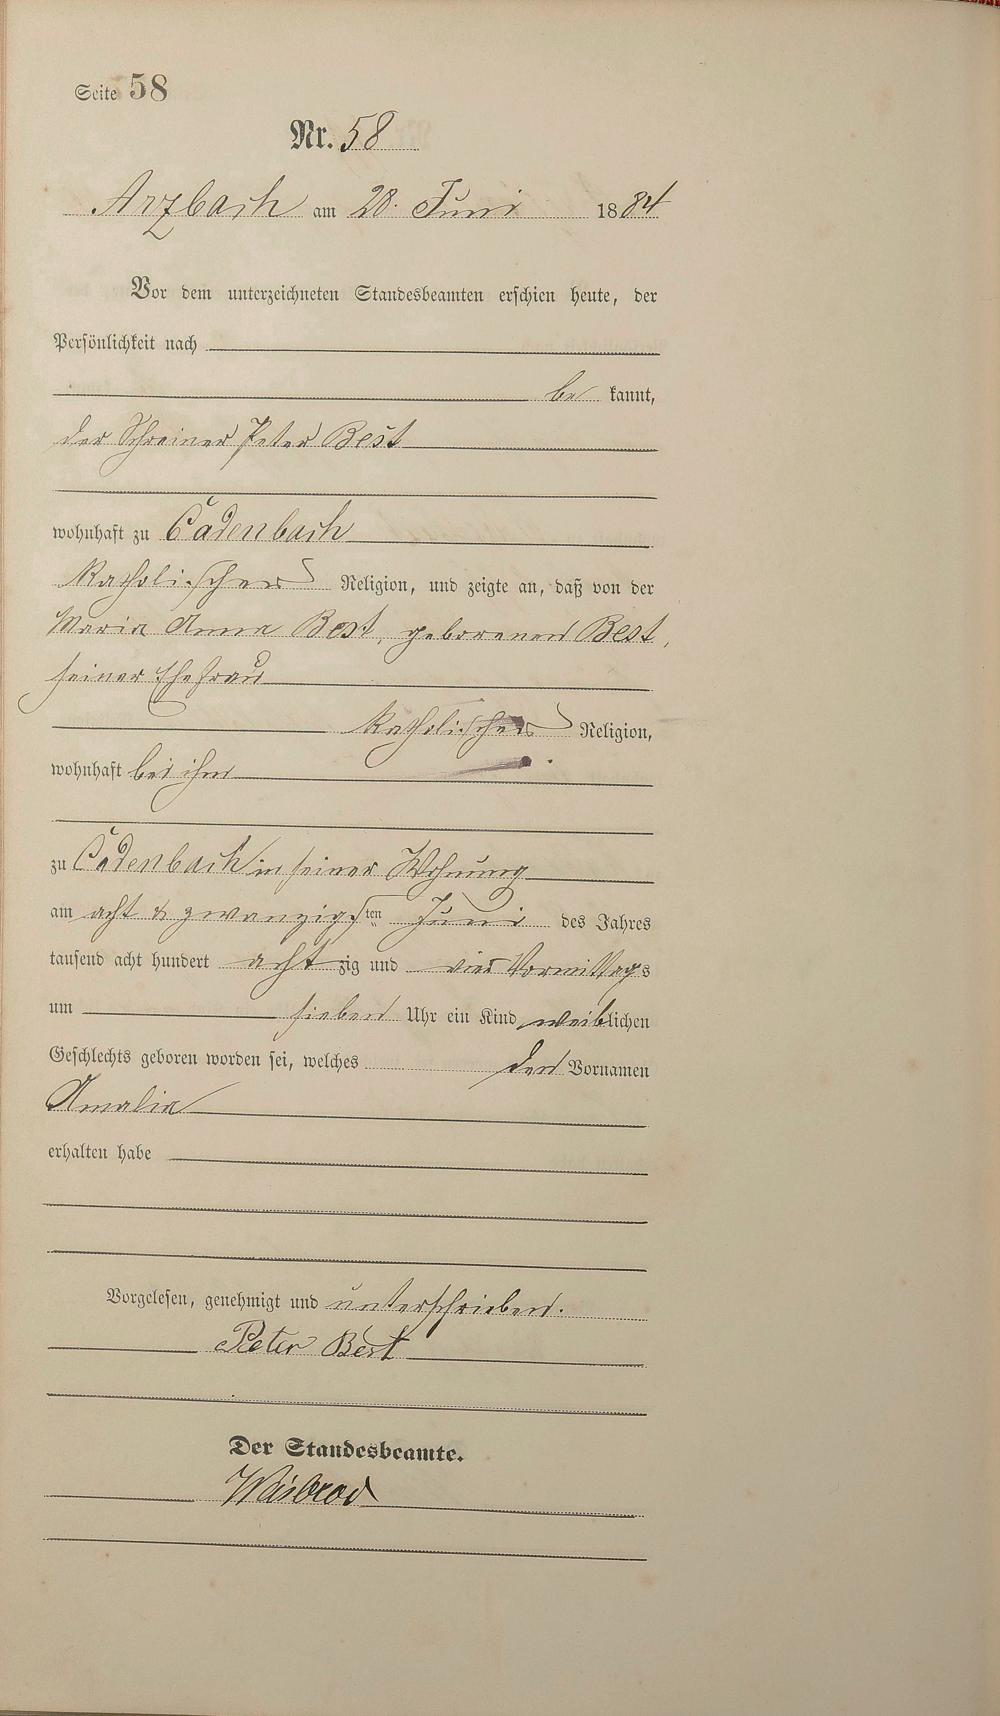 Seite 58
Nr. 58
Arzbach am 28. Juni 1884
Vor dem unterzeichneten Standesbeamten erschien heute, der
Persönlichkeit nach
be kannt,
der Schreiner Peter Best
wohnhaft zu Cadenbach
katholischer Religion, und zeigte an, daß von der
Maria Anna Best, geborenen Best,
seiner Ehefrau
katholischer Religion,
wohnhaft bei ihm
zu Cadenbach in seiner Wohnung
am acht & zwanzigsten Juni des Jahres
tausend acht hundert achtzig und vier Vormittags
um sieben Uhr ein Kind weiblichen
Geschlechts geboren worden sei, welches den Vornamen
Amalia
erhalten habe
Vorgelesen, genehmigt und unterschrieben.
Peter Best
Der Standesbeamte.